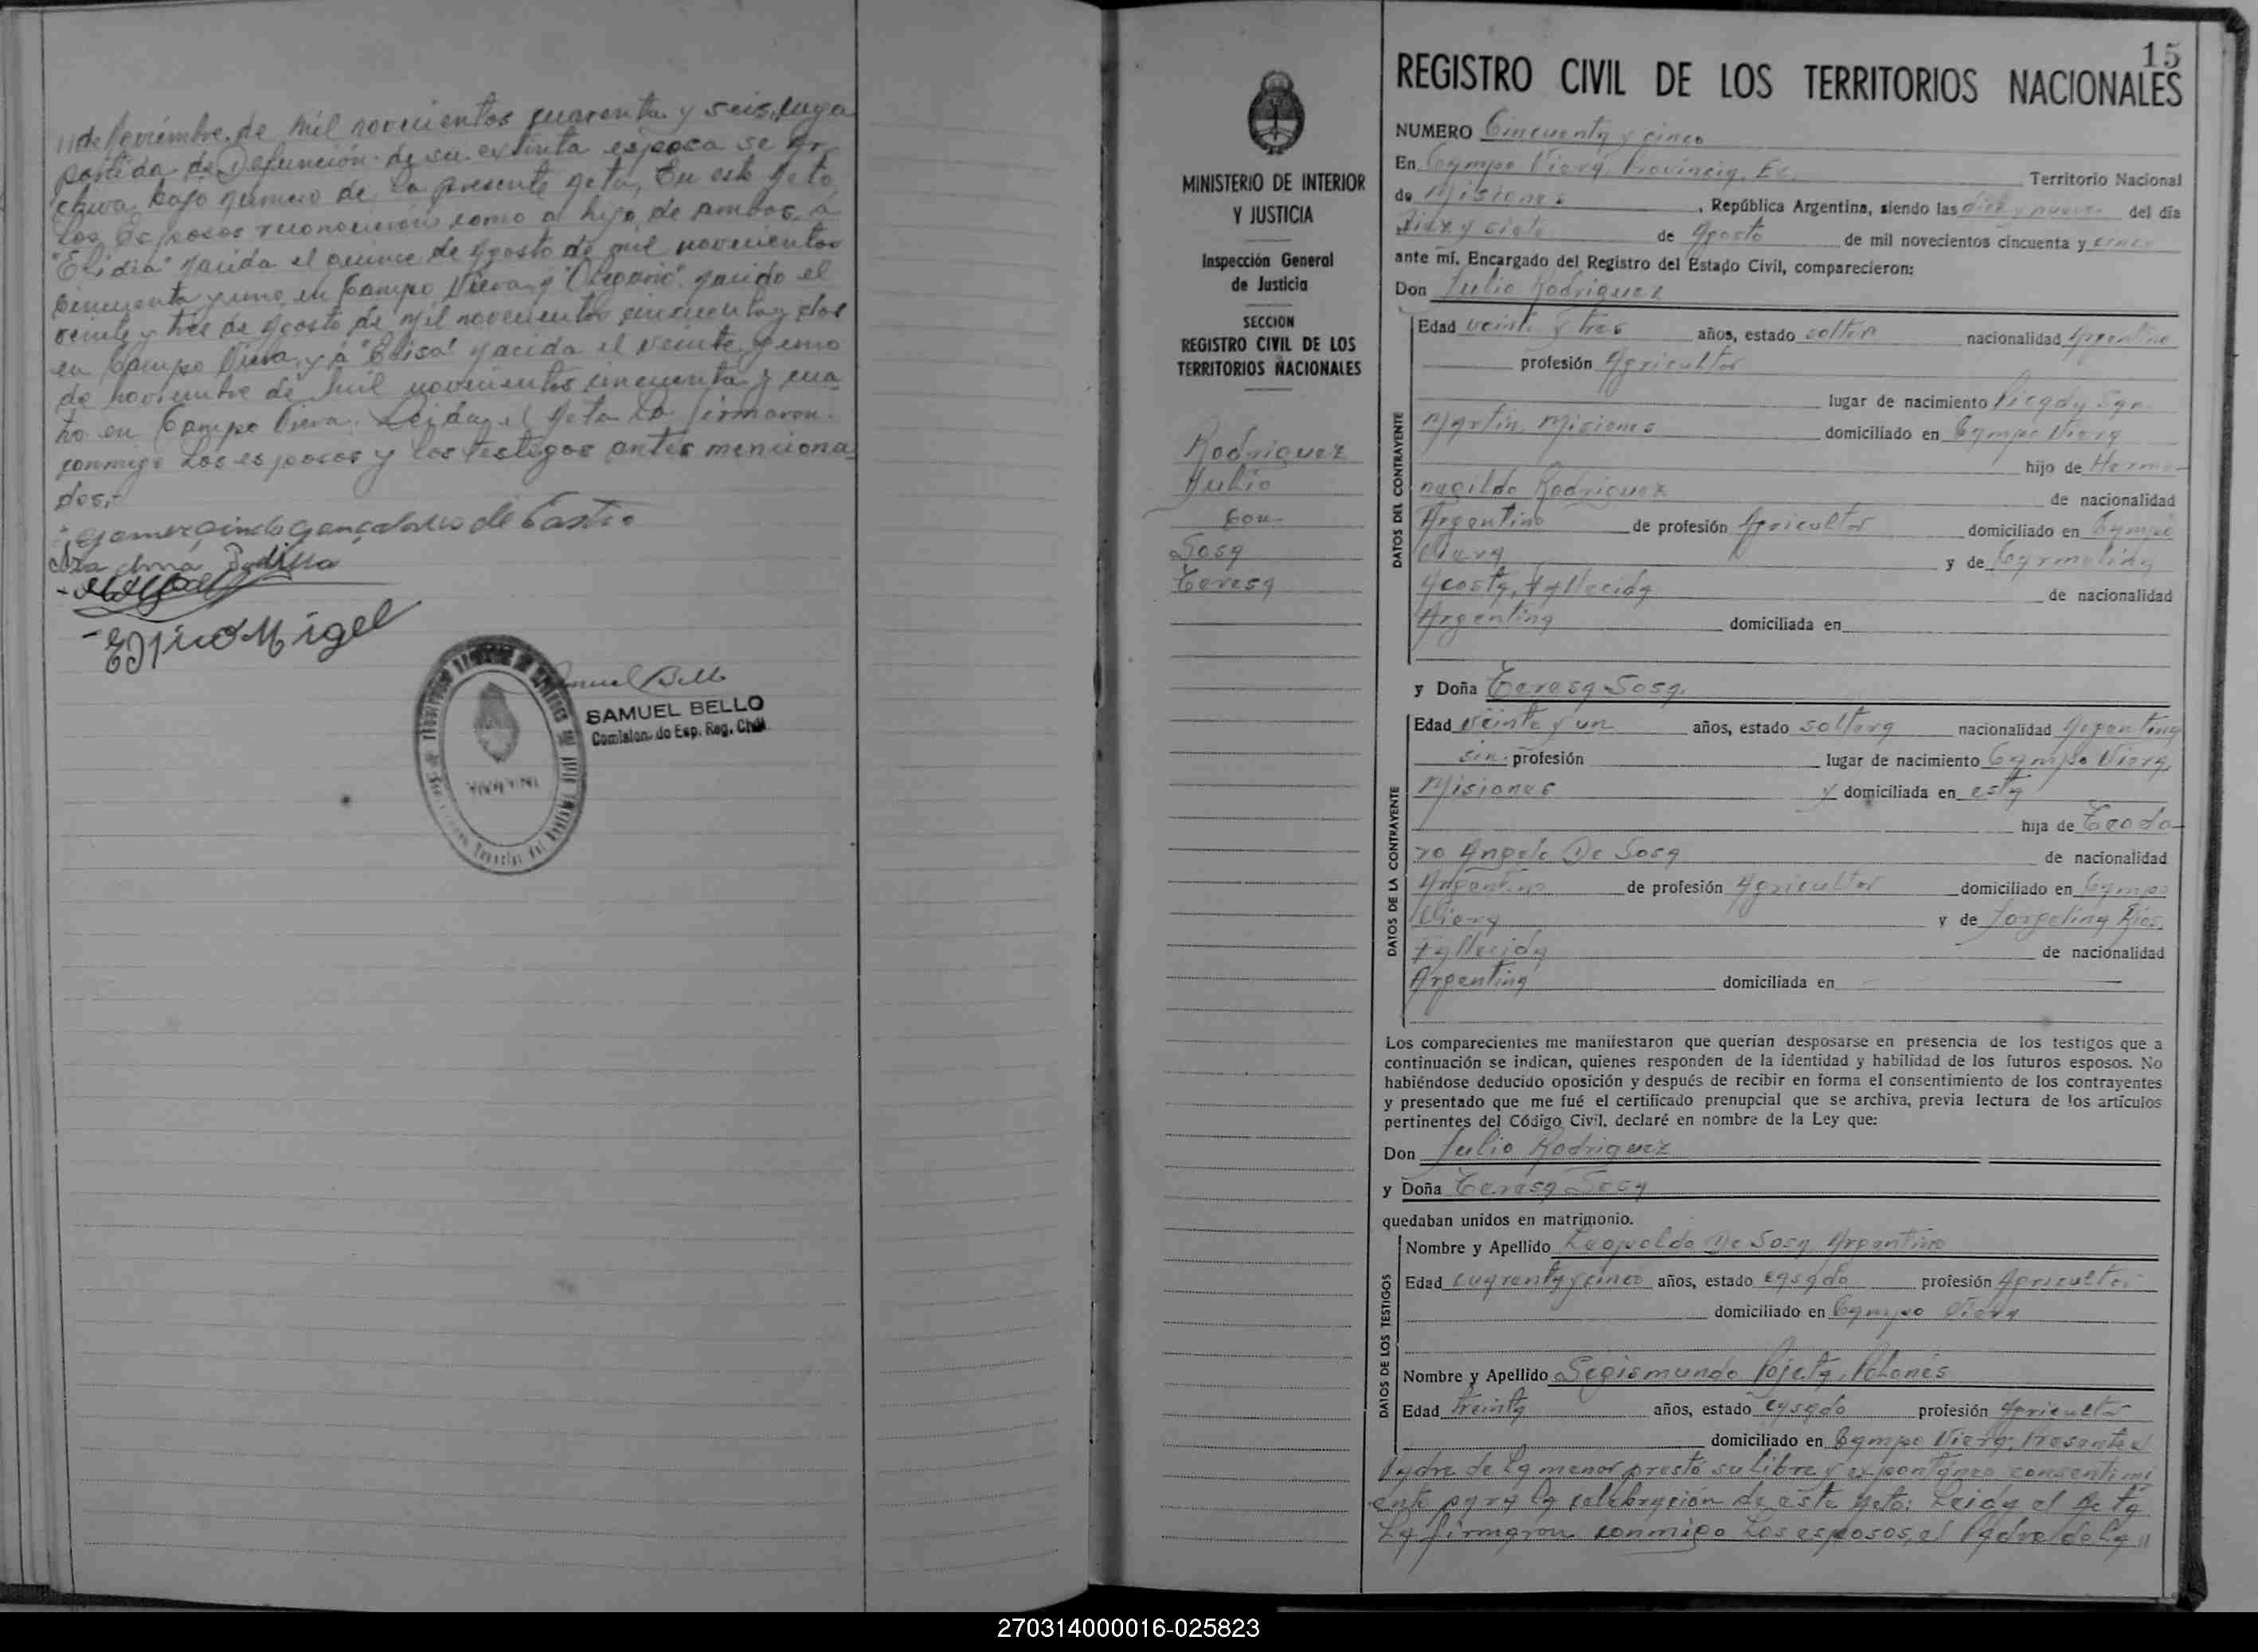 11 de Noviembre de mil novecientos cuarenta y seis, cuya
partida de Defunción de su extinta esposa se ar
chiva bajo número de la presente Acta, En este Acto
Los Esposos reconocieron como a hijo de ambos, á
"Elidia" nacida el quince de Agosto de mil novecientos
cincuenta y uno en Campo Viera, y "Olegario" nacido el
veinte y tres de Agosto de mil novecientos cincuenta y dos
en Campo Viera, y á "Elisa" nacida el veinte y uno
de noviembre de mil novecientos cincuenta y cua
tro en Campo Viera. Leida el Acta La firmaron
conmigo Los esposos y los testigos antes menciona
dos.-
Gomercindo Gonçalves de Castro
Ana Padilla
Migel
Samuel Bello
SAMUEL BELLO
Comision. de Esp. Reg. Civil
15
REGISTRO CIVIL DE LOS TERRITORIOS NACIONALES
MINISTERIO DE INTERIOR
Y JUSTICIA
Inspección General
de Justicia
SECCION
REGISTRO CIVIL DE LOS
TERRITORIOS NACIONALES
Rodriguez
Julio
Con
Sosa
Teresa
NUMERO Cincuenta y cinco
En Campo Viera, Provincia, Ex. Territorio Nacional
de Misiones, República Argentina, siendo las diez y nueve del día
Diez y siete de Agosto de mil novecientos cincuenta y cinco
ante mí, Encargado del Registro del Estado Civil, comparecieron:
Don Julio Rodriguez
DATOS DEL CONTRAYENTE
Edad veinte y tres años, estado soltero nacionalidad Argentino
profesión Agricultor
lugar de nacimiento Picada San
Martín, Misiones domiciliado en Campo Viera
hijo de Herme-
negildo Rodriguez de nacionalidad
Argentino de profesión Agricultor domiciliado en Campo
Viera y de Carmelina
Acosta, Fallecida de nacionalidad
Argentina domiciliada en
y Doña Teresa Sosa.
DATOS DE LA CONTRAYENTE
Edad veinte y un años, estado soltera nacionalidad Argentina
sin profesión lugar de nacimiento Campo Viera,
Misiones y domiciliada en esta
hija de Teodo-
ro Angel De Sosa de nacionalidad
Argentino de profesión Agricultor domiciliado en Campo
Viera y de Rios,
Fallecida de nacionalidad
Argentina domiciliada en
Los comparecientes me manifestaron que querían desposarse en presencia de los testigos que a
continuación se indican, quienes responden de la identidad y habilidad de los futuros esposos. No
habiéndose deducido oposición y después de recibir en forma el consentimiento de los contrayentes
y presentado que me fué el certificado prenupcial que se archiva, previa lectura de los artículos
pertinentes del Código Civil, declaré en nombre de la Ley que:
Don Julio Rodriguez
y Doña Teresa Sosa
quedaban unidos en matrimonio.
DATOS DE LOS TESTIGOS
Nombre y Apellido Leopoldo De Sosa Argentino
Edad cuarenta y cinco años, estado casado profesión Agricultor
domiciliado en Campo Viera
Nombre y Apellido Segismundo Pojeta, Polonés
Edad treinta años, estado casado profesión Agricultor
domiciliado en Campo Viera, Presente el
Padre de la menor prestó su libre y expontáneo consentimi
ento para la celebración de este Acto: Leida el Acta
La firmaron conmigo Los esposos, el Padre de la 11
270314000016-025823